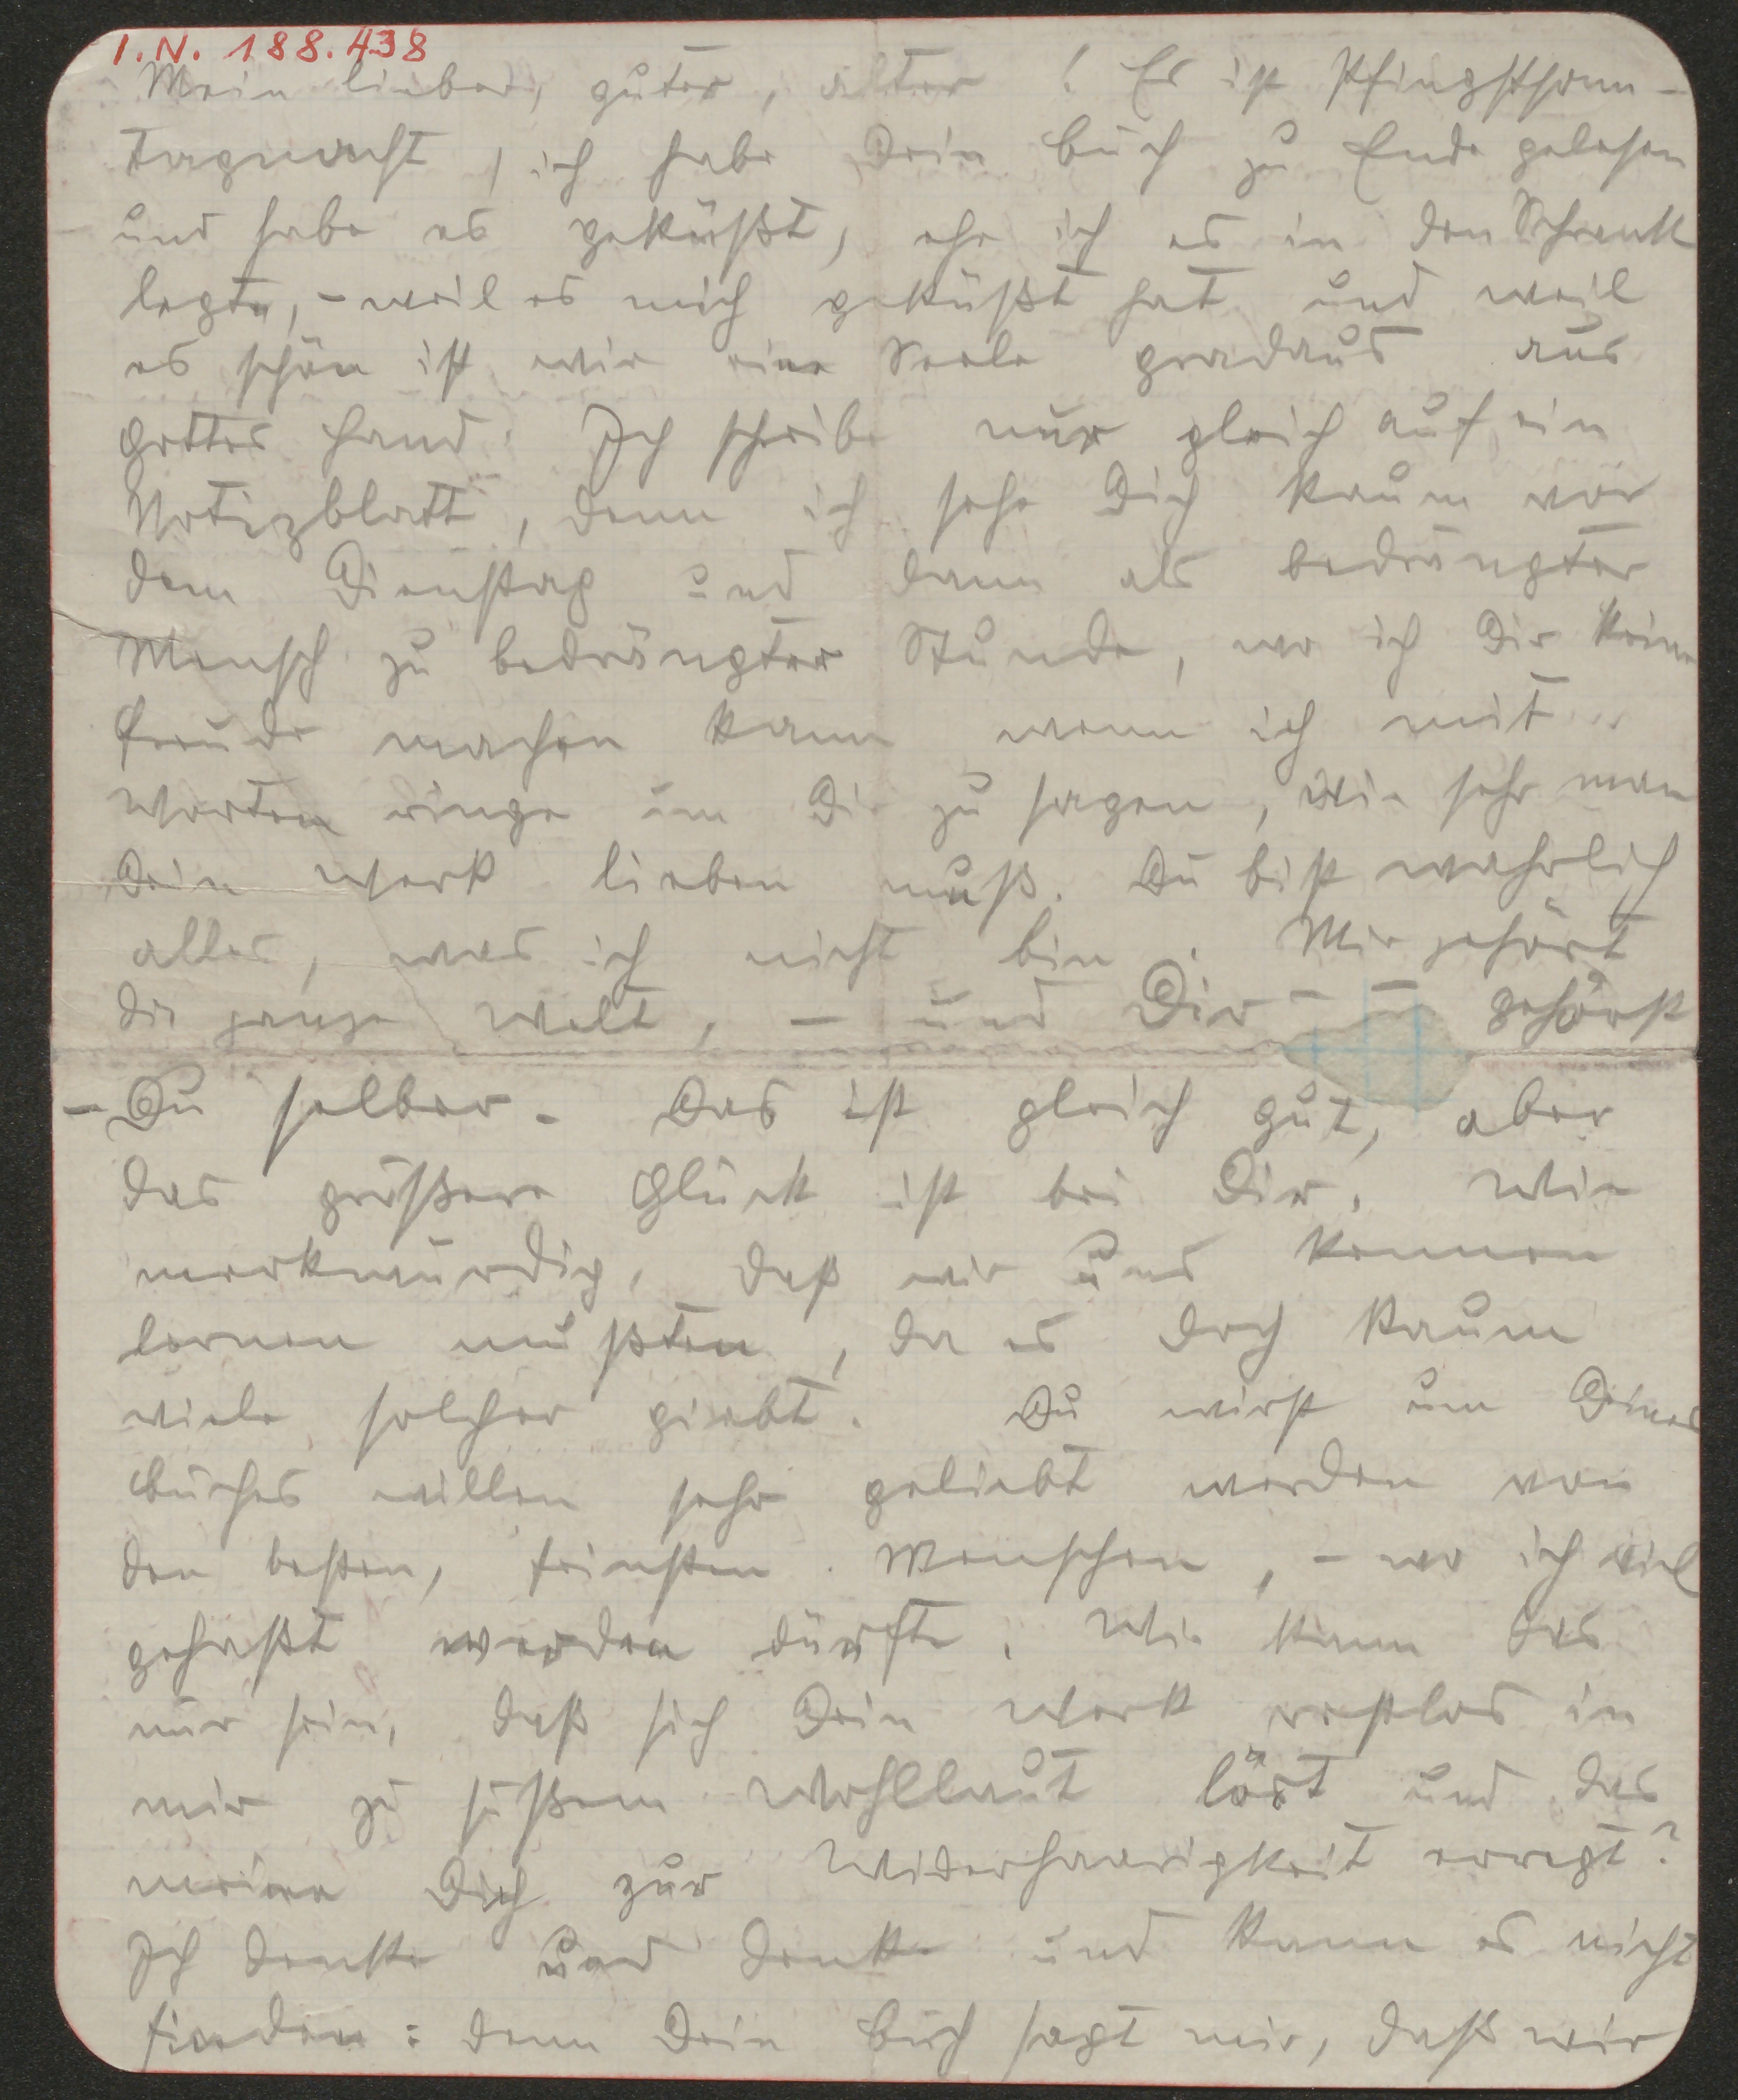 I. N. 188.438
Mein lieber, guter, alter ! Es ist Pfingstsonn-
tagnacht, ich habe Dein Buch zu Ende gelesen
und habe es geküßt, ehe ich es in den Schrank
legte, – weil es mich geküßt hat und weil
es schön ist wie eine Seele gradaus aus
Gottes Hand. Ich schreibe nur gleich auf ein
Notizblatt, denn ich sehe Dich kaum vor
dem Dienstag und dann als bedrängter
Mensch zu bedrängter Stunde, wo ich Dir keine
Freude machen kann wenn ich mit
Worten ringe um Dir zu sagen, wie sehr man
Dein Werk lieben muß. Du bist wahrlich
alles, was ich nicht bin. Mir gehört
die ganze Welt, – und Dir – – gehörst
– Du selber. Das ist gleich gut, aber
das größere Glück ist bei Dir. Wie
merkwürdig, daß wir uns kennen
lernen mußten, da es doch kaum
viele solcher giebt. Du wirst um Deines
Buches willen sehr geliebt werden von
den besten, feinsten Menschen, – wo ich viel
gehaßt werden dürfte. Wie kann das
nur sein, daß sich Dein Werk restlos in
mir zu süßem Wohllaut löst und das
meine Dich zur Widerhaarigkeit erregt?
Ich denke und denke und kann es nicht
finden: denn Dein Buch sagt mir, daß wir